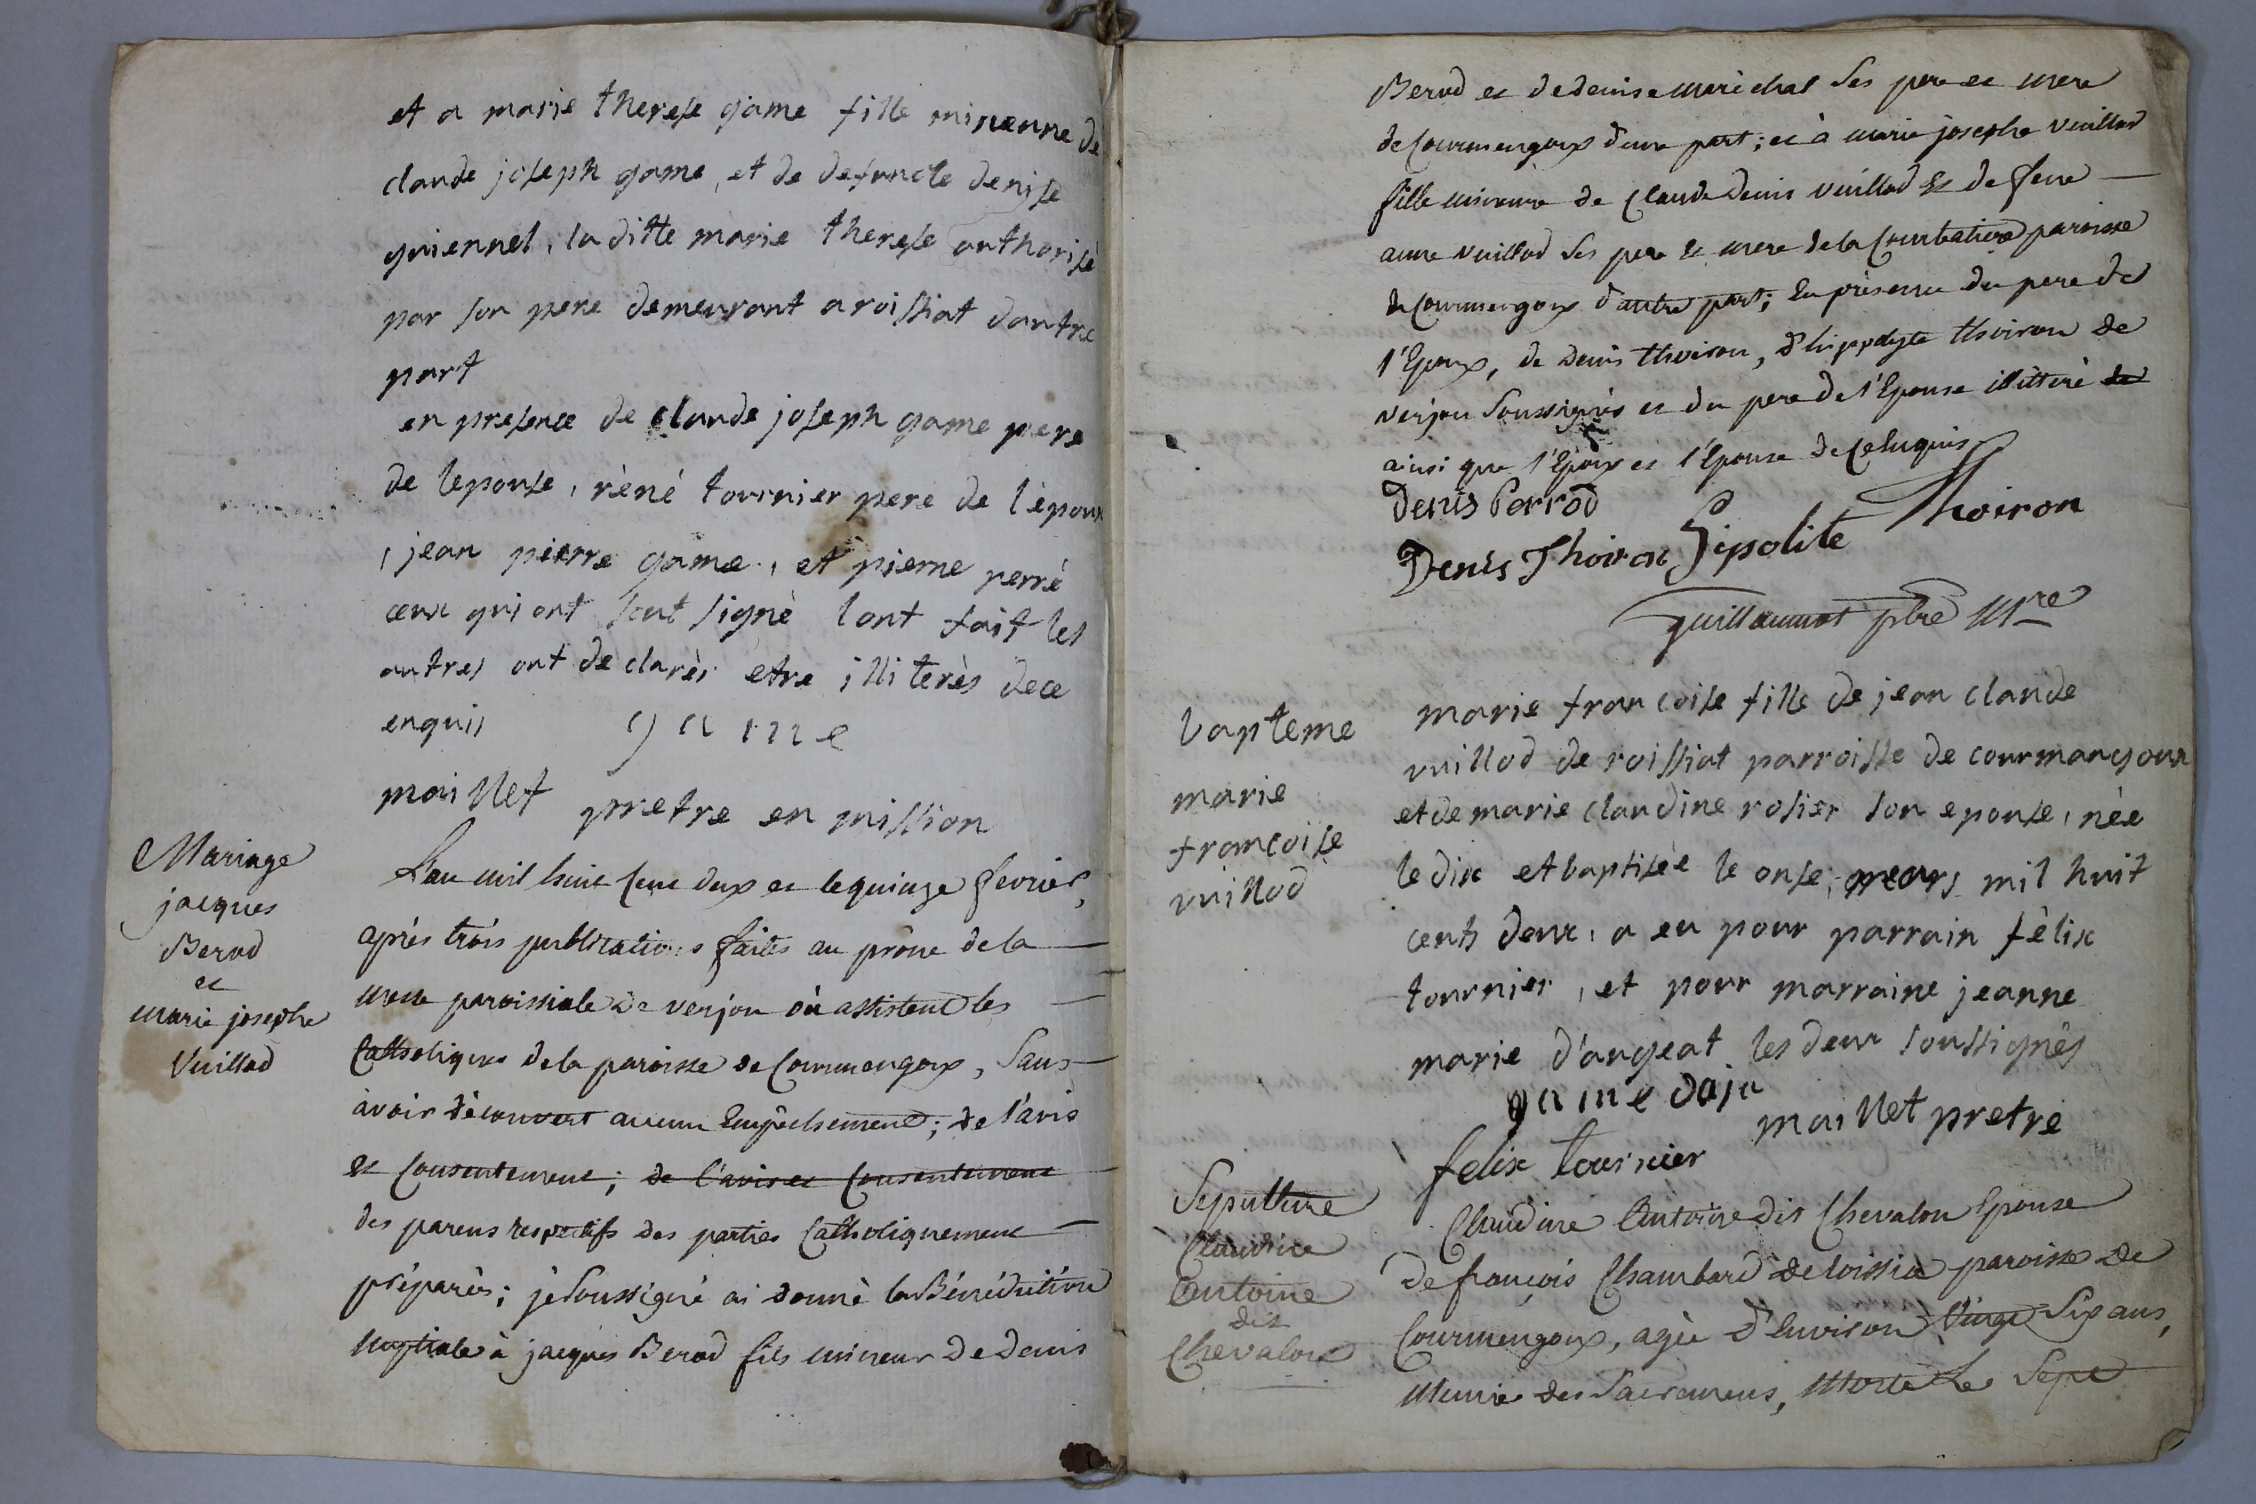 et a marie therese game fille mineure de
claude joseph game, et de defuncte denise
guiennet, la ditte marie therese authorisé
par son pere demeurant a roissiat dautre
part
en presence de claude joseph game pere
de lepouse, rèné tournier pere de l'èpoux
, jean pierre game, et pierre perré
ceux qui ont scut signè lont fait les
autres ont dèclarès etre illiterès dece
enquis game
maillet pretre en mission
Mariage
jacques
Berod
et
marie josephe
Vuillod
L'an mil huit Cent deux et le quinze fevrier,
après trois publications faites au prône de la
messe paroissiale de verjon où assistent les
Catholiques de la paroisse de Courmengoux, Sans
avoir découvert aucun Empêchement; de l'avis
et Consentement; de l'avis et Consentement
des parens respectifs des parties Catholiquement
préparés; je soussigné ai donné la Bénédiction
Nuptiale à jacques Berod fils mineur de denis
Berod et de denise marèchal Ses pere et mere
de Courmengoux d'une part; et à marie josephe vuillod
fille mineure de Claude denis vuillod Et de feue
anne vuillod Ses pere et mere de la Courbatiere paroisse
de Courmengoux d'autre part; En présence du pere de
l'Epoux, de denis thoiron, d'hippolyte thoiron de
verjon Soussignés et du pere de l'Epouse illitéré de
ainsi que l'Epoux et l'Epouse de Ce Enquis
Denis Perrod
Denis Thoiron Hipolite Thoiron
guillaumot ptre Mre
bapteme
marie
francoise
vuillod
marie francoise fille de jean claude
vuillod de roissiat parroisse de courmangoux
et de marie claudine rosier son epouse, née
le dix et baptisée le onse, mars mil huit
cents deux, a eu pour parrain félix
tournier, et pour marraine jeanne
marie d'angeat les deux soussignés
game daja
maillet pretre
felix tournier
Sepulture
Claudine
Antoine
dit
Chevalon
Claudine Antoine dit Chevalon Epouse
de françois Chambard de loissia paroisse de
Courmengoux, agée d'Environ Vingt Six ans,
Munie des Sacremens, Morte Le Sept